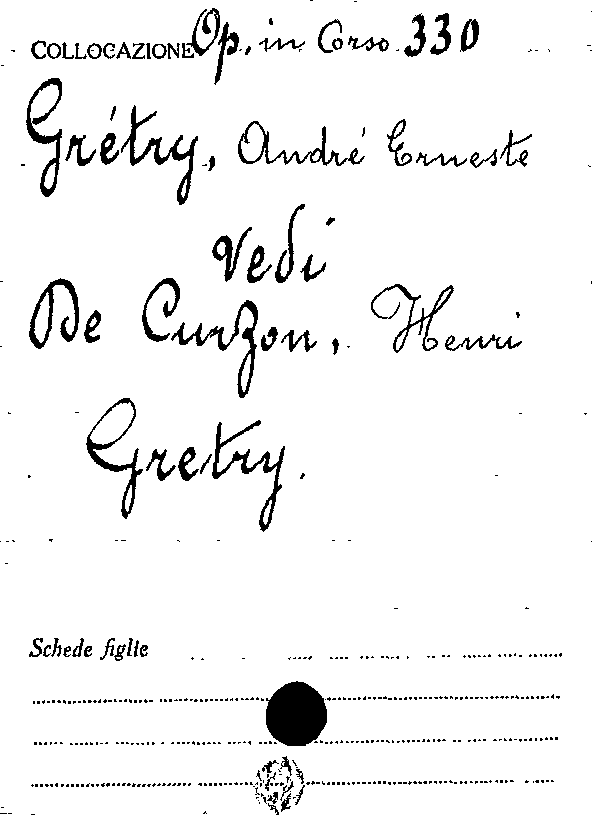 COLLOCAZIONE Op. in Corso 330
Grétry, André Erneste
Vedi
De Curzon, Henri
Gretry.
Schede figlie